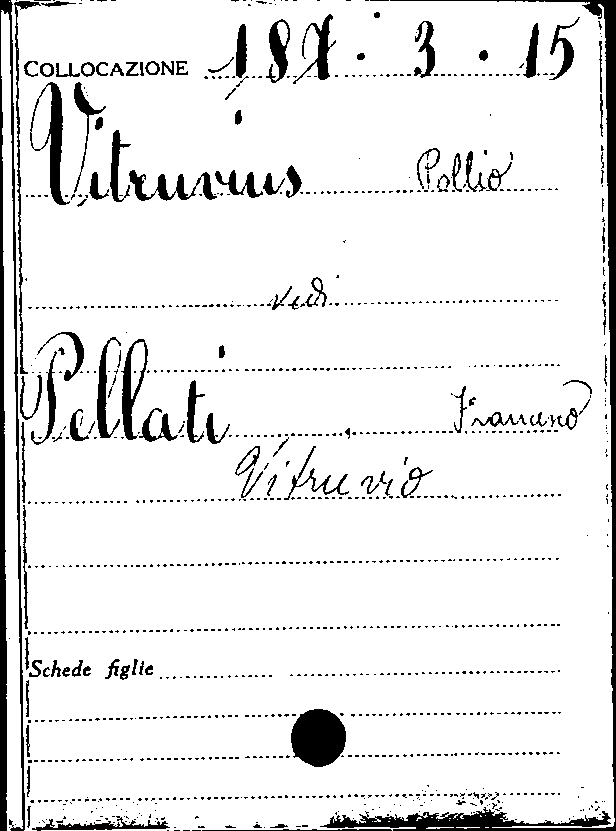 COLLOCAZIONE 187 · 3 · 15
Vitruvius Pollio
vedi
Pellati, Francesco
Vitruvio
Schede figlie